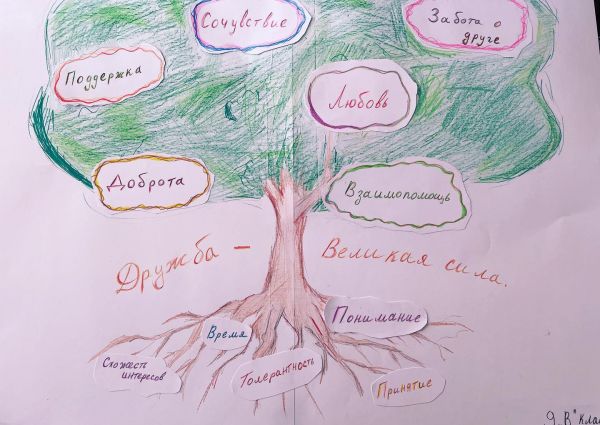 Сочувствие
Забота о
друге
Поддержка
Любовь
Доброта
Взаимопомощь
Дружба – Великая сила.
Понимание
Время
Схожесть
интересов
Толерантность
Принятие
9 „В" Кла